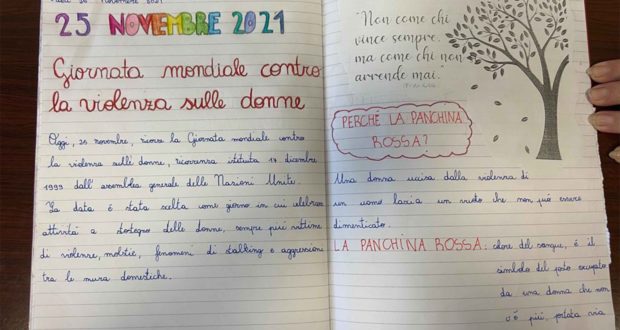 25 NOVEMBRE 2021
Giornata mondiale contro
la violenza sulle donne
Oggi, 25 novembre, ricorre la Giornata mondiale contro
la violenza sulle donne, ricorrenza istituita 17 dicembre
1999 dall'assemblea generale delle Nazioni Unite.
La data è stata scelta come giorno in cui celebrare
attività a sostegno delle donne, sempre più vittime
di violenze, molestie, fenomeni di stalking e aggressioni
tra le mura domestiche.
"Non come chi
vince sempre,
ma come chi non
arrende mai."
PERCHÉ LA PANCHINA
ROSSA?
Una donna uccisa dalla violenza di
un uomo lascia un vuoto che non può essere
dimenticato.
LA PANCHINA ROSSA: colore del sangue, è il
simbolo del posto occupato
da una donna che non
c'è più, portata via